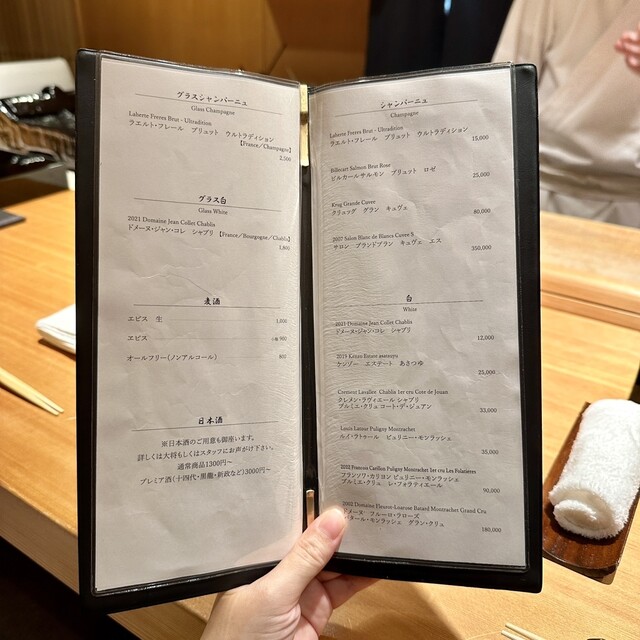 グラスシャンパーニュ
Glass Champagne
Laherte Freres Brut - Ultradition
ラエルト・フレール ブリュット ウルトラディション
【France／Champagne】
2,500
グラス白
Glass White
2021 Domaine Jean Collet Chablis
ドメーヌ・ジャン・コレ シャブリ 【France／Bourgogne／Chablis】
1,800
麦酒
エビス 生 1,000
エビス 小瓶 900
オールフリー(ノンアルコール) 800
日本酒
※日本酒のご用意も御座います。
詳しくは大将もしくはスタッフにお声がけ下さい。
通常商品1300円～
プレミア酒(十四代・黒龍・新政など)3000円～
シャンパーニュ
Champagne
Laherte Freres Brut - Ultradition
ラエルト・フレール ブリュット ウルトラディション
15,000
Billecart Salmon Brut Rose
ビルカールサルモン ブリュット ロゼ
25,000
Krug Grande Cuvee
クリュッグ グラン キュヴェ
80,000
2007 Salon Blanc de Blancs Cuvee S
サロン ブランドブラン キュヴェ エス
350,000
白
White
2021 Domaine Jean Collet Chablis
ドメーヌ・ジャン・コレ シャブリ
12,000
2019 Kenzo Estate asatsuyu
ケンゾー エステート あさつゆ
25,000
Crement Lavallee Chablis 1er cru Cote de Jouan
クレメン・ラヴィエール シャブリ
プルミエ・クリュ コート・デ・ジュアン
33,000
Louis Latour Puligny Montrachet
ルイ・ラトゥール ピュリニー・モンラッシェ
35,000
2022 Francois Carillon Puligny Montrachet 1er cru Les Folatieres
フランソワ・カリヨン ピュリニー・モンラッシェ
プルミエ・クリュ レ・フォラティエール
90,000
2002 Domaine Fleurot-Larose Batard Montrachet Grand Cru
ドメーヌ フルーロ・ラローズ
バタール・モンラッシェ グラン・クリュ
180,000